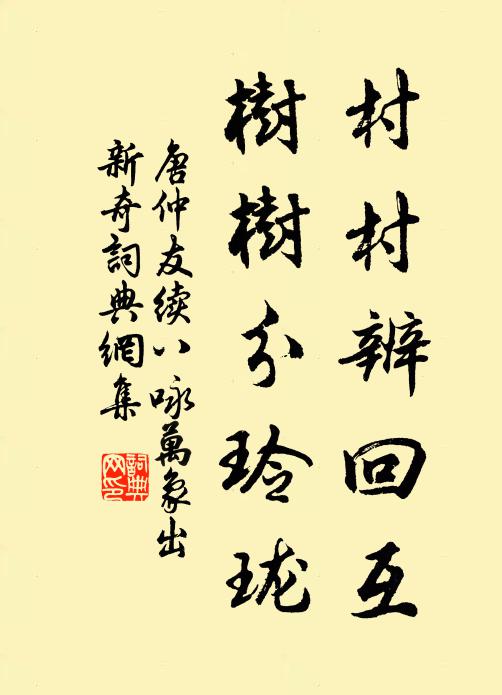 村村辨回互
樹樹分玲珑
唐仲友續八咏萬象出
新奇詞典網集
詞典网印